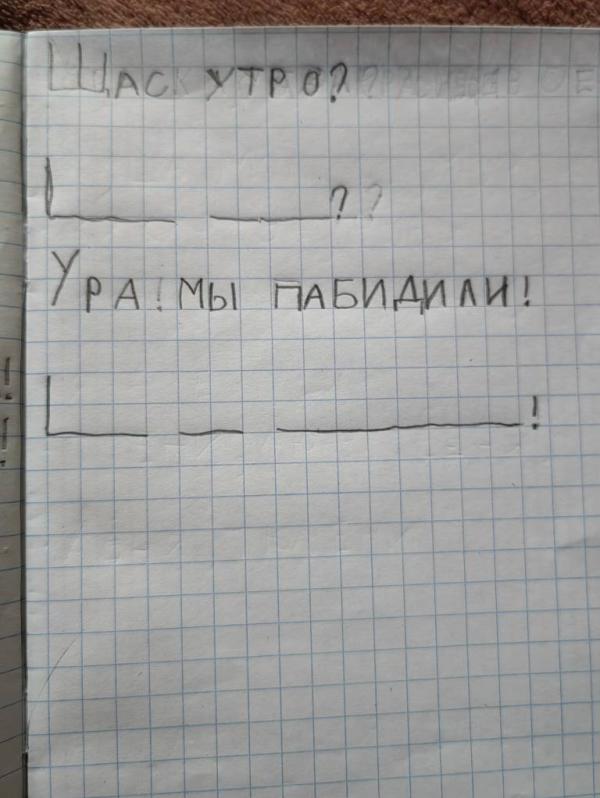 ЩАС УТРО?
? ?
УРА! МЫ ПАБИДИЛИ!
!